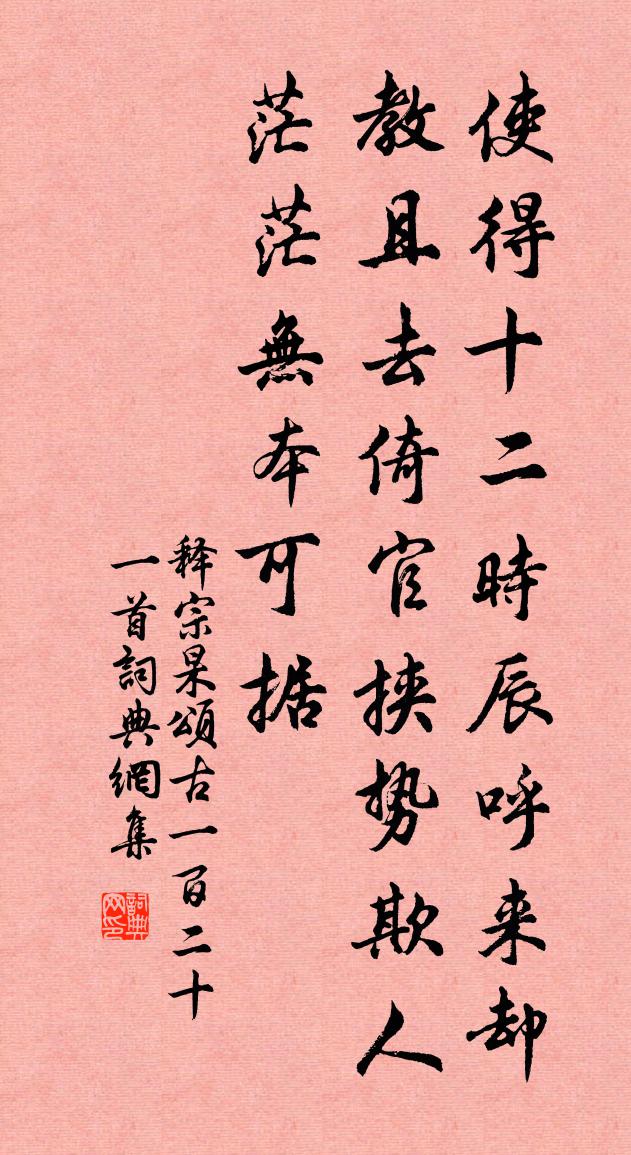 使得十二時辰呼来却
教且去倚官挟势欺人
茫茫無本可据
释宗杲頌古一百二十
一首詞典網集
詞典
网印